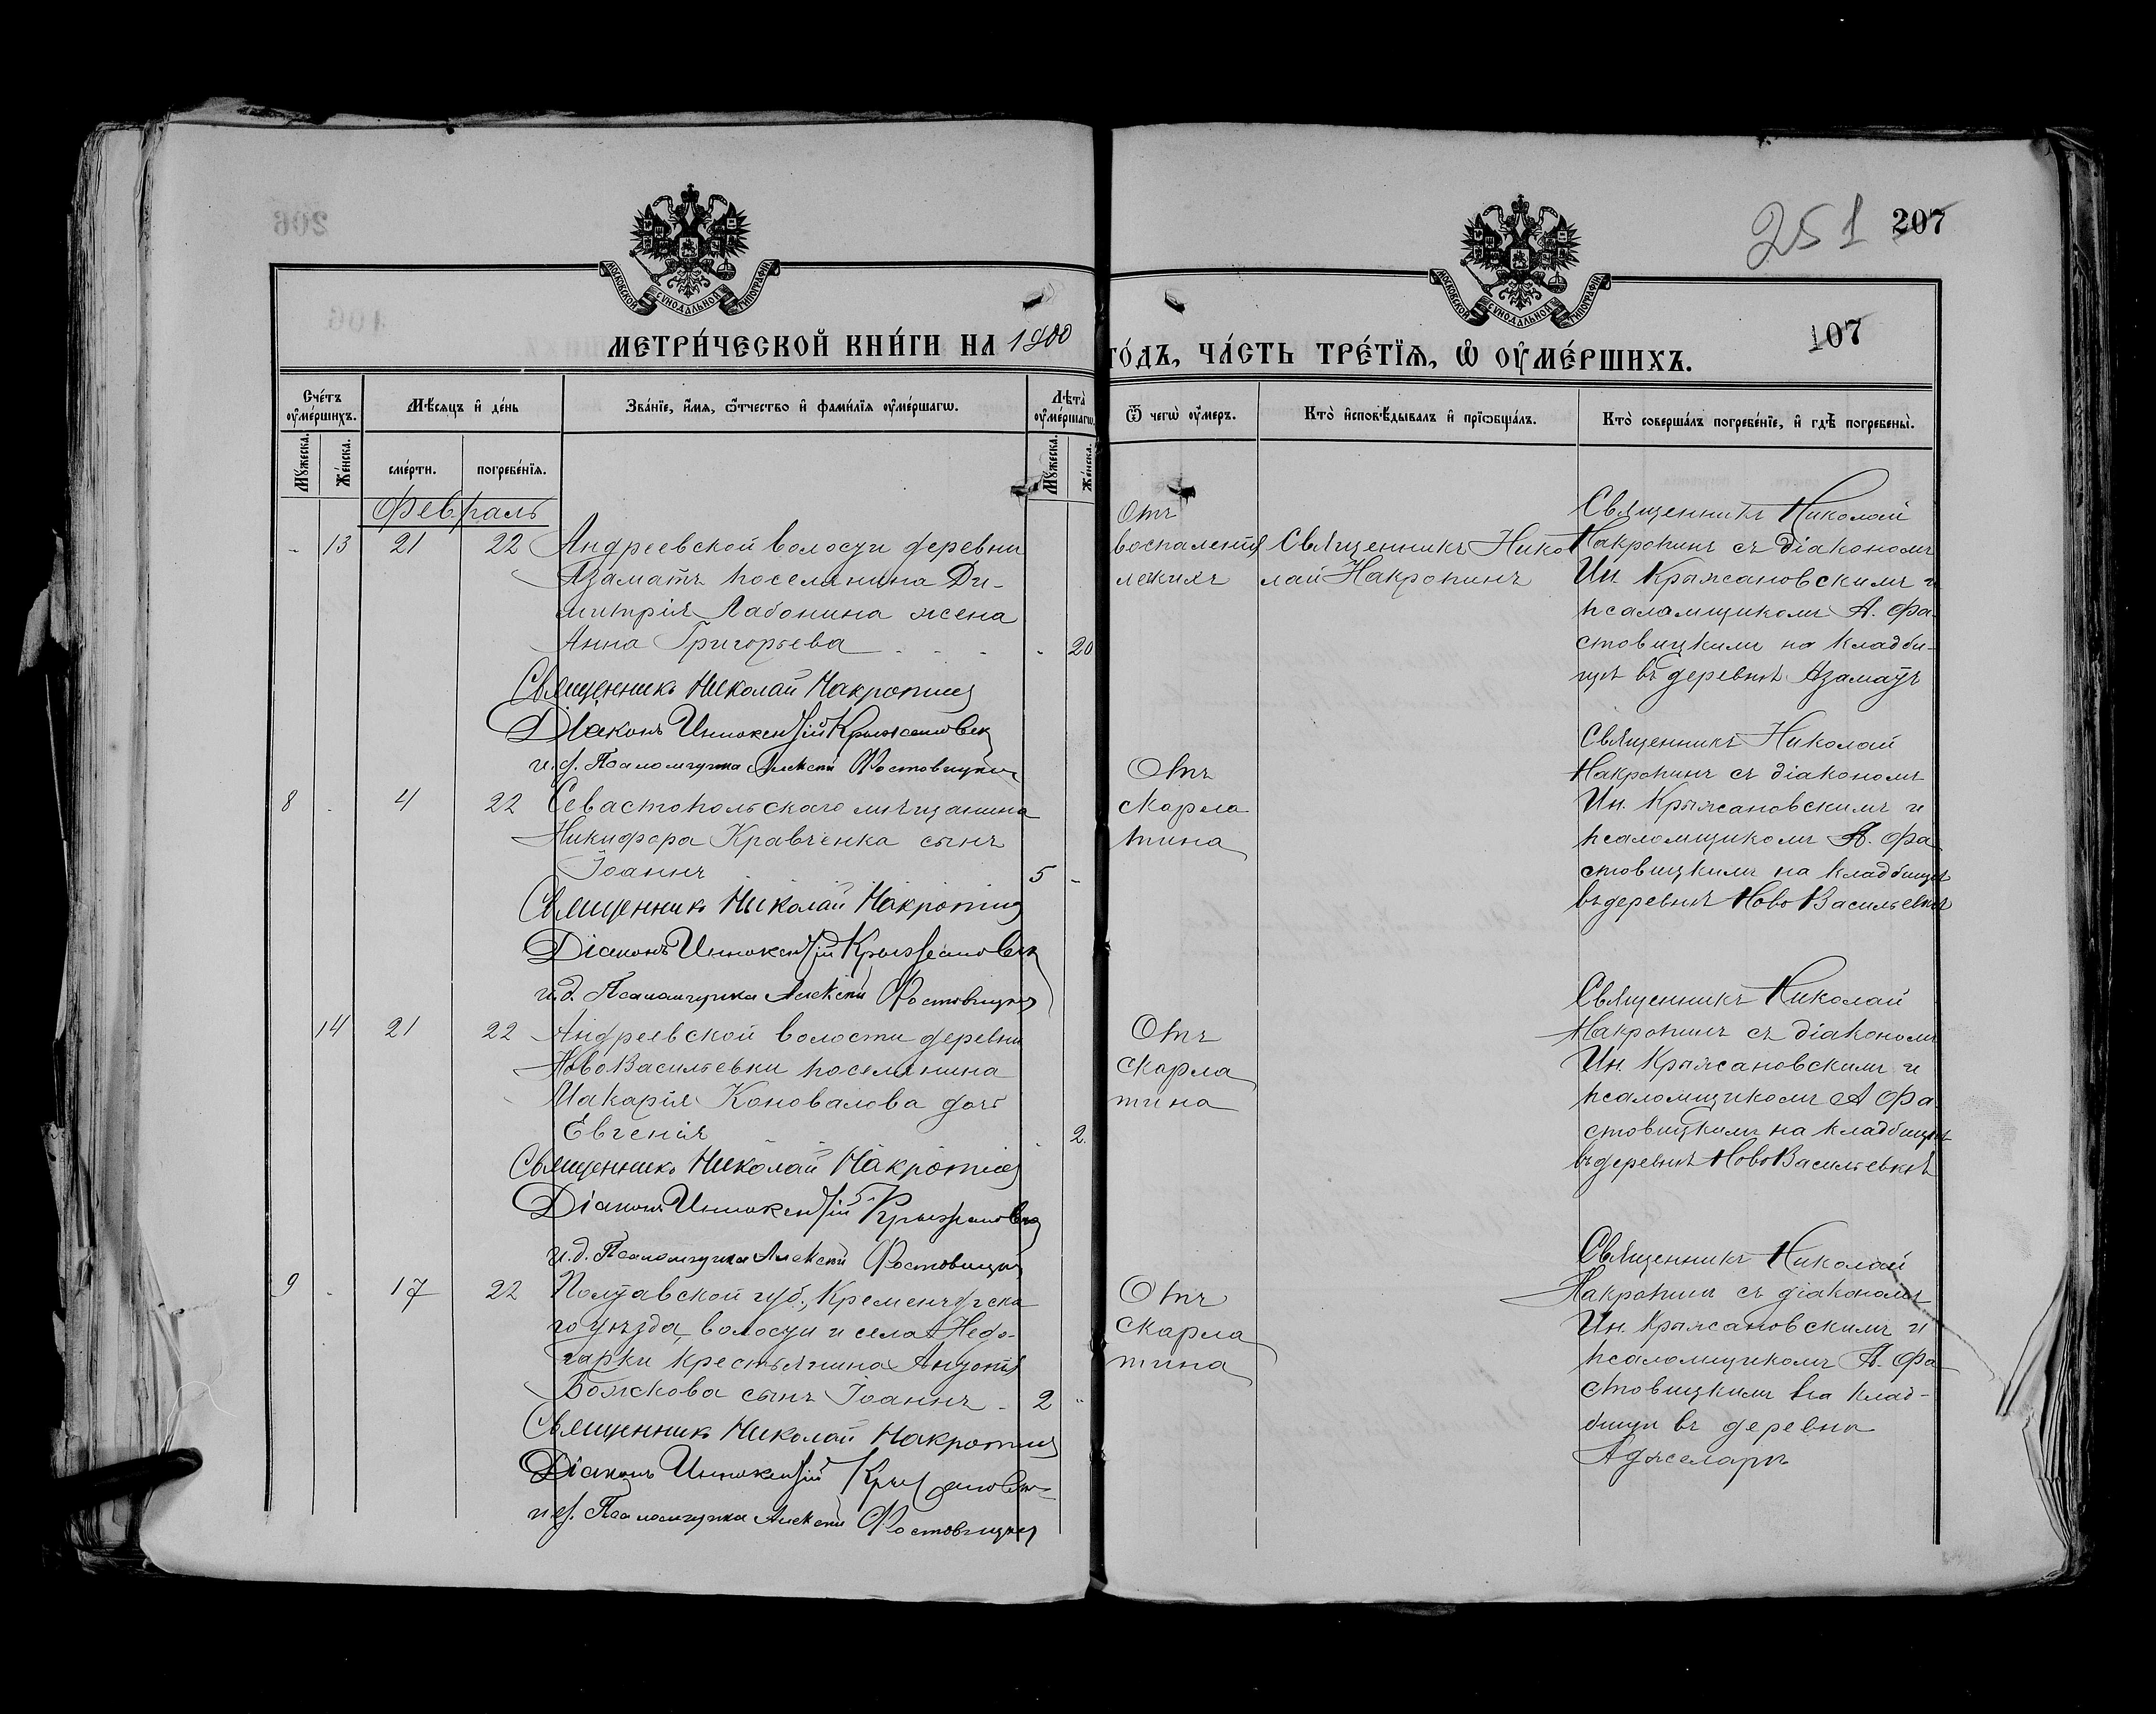 206
251 207
МОСКОВСКОЙ СѴНОДАЛЬНОЙ ТИПОГРАФІИ
МОСКОВСКОЙ СѴНОДАЛЬНОЙ ТИПОГРАФІИ
106
107
МЕТРИ́ЧЕСКОЙ КНИ́ГИ НА 1900
ГО́ДЪ, ЧА́СТЬ ТРЕ́ТЇѦ, Ѡ ОУ҆МЕ́РШИХЪ.
Сче́тъ оу҆ме́ршихъ.
Мѣ́сѧцъ и҆ де́нь
Зва́нїе, и҆́мѧ, ѿтчество и҆ фами́лїѧ оу҆ме́ршагѡ.
Лѣта̀ оу҆ме́ршагѡ.
Ѿ чегѡ̀ оу҆́меръ.
Кто̀ и҆сповѣ́дывалъ и҆ прїѡбща́лъ.
Кто̀ соверша́лъ погребе́нїе, и҆ гдѣ̀ погребены̀.
Мꙋ́жеска.
Же́нска.
сме́рти.
погребе́нїѧ.
Мꙋ́жеска.
Же́нска.
Февраль
- 13 21 22 Андреевской волости деревни
Азаматъ поселянина Ди-
митрія Лабонина жена
Анна Григорьева - - - - 20
Священникъ Николай Накропинъ
Діаконъ Иннокентій Крыжановск
и. д. Псаломщика Алексѣй Фастовицкій
Отъ
воспаленія
легкихъ
Священникъ Нико
лай Накропинъ
Священникъ Николай
Накропинъ съ діакономъ
Ин. Крыжановскимъ и
псаломщикомъ А. Фа-
стовицкимъ на кладби-
щѣ въ деревнѣ Азаматъ
8 - 4 22 Севастопольскаго мѣщанина
Никифора Кравченка сынъ
Іоаннъ 5 -
Священникъ Николай Накропинъ
Діаконъ Иннокентій Крыжановск
и. д. Псаломщика Алексѣй Фастовицкій
Отъ
скарла
тина
Священникъ Николай
Накропинъ съ діакономъ
Ин. Крыжановскимъ и
псаломщикомъ А. Фа
стовицкимъ на кладбищѣ
въ деревнѣ Ново Васильевкѣ
14 21 22 Андреевской волости деревни
Ново Васильевки поселянина
Макарія Коновалова дочь
Евгенія - - - 2.
Священникъ Николай Накропинъ
Діаконъ Иннокентій Крыжановск
и. д. Псаломщика Алексѣй Фастовицкій
Отъ
скарла
тина
Священникъ Николай
Накропинъ съ діакономъ
Ин. Крыжановскимъ и
псаломщикомъ А Фа
стовицкимъ на кладбищѣ
въ деревнѣ Ново Васильевкѣ
9 - 17 22 Полтавской губ., Кременчугска
го уѣзда, волости и села Недо-
гарки крестьянина Антонія
Божкова сынъ Іоаннъ - 2 "
Священникъ Николай Накропинъ
Діаконъ Иннокентій Крыжановск
и. д. Псаломщика Алексѣй Фастовицкій
Отъ
скарла
тина
Священникъ Николай
Накропинъ съ діакономъ
Ин. Крыжановскимъ и
псаломщикомъ А. Фа
стовицкимъ на клад-
бищи въ деревни
Аджеларъ